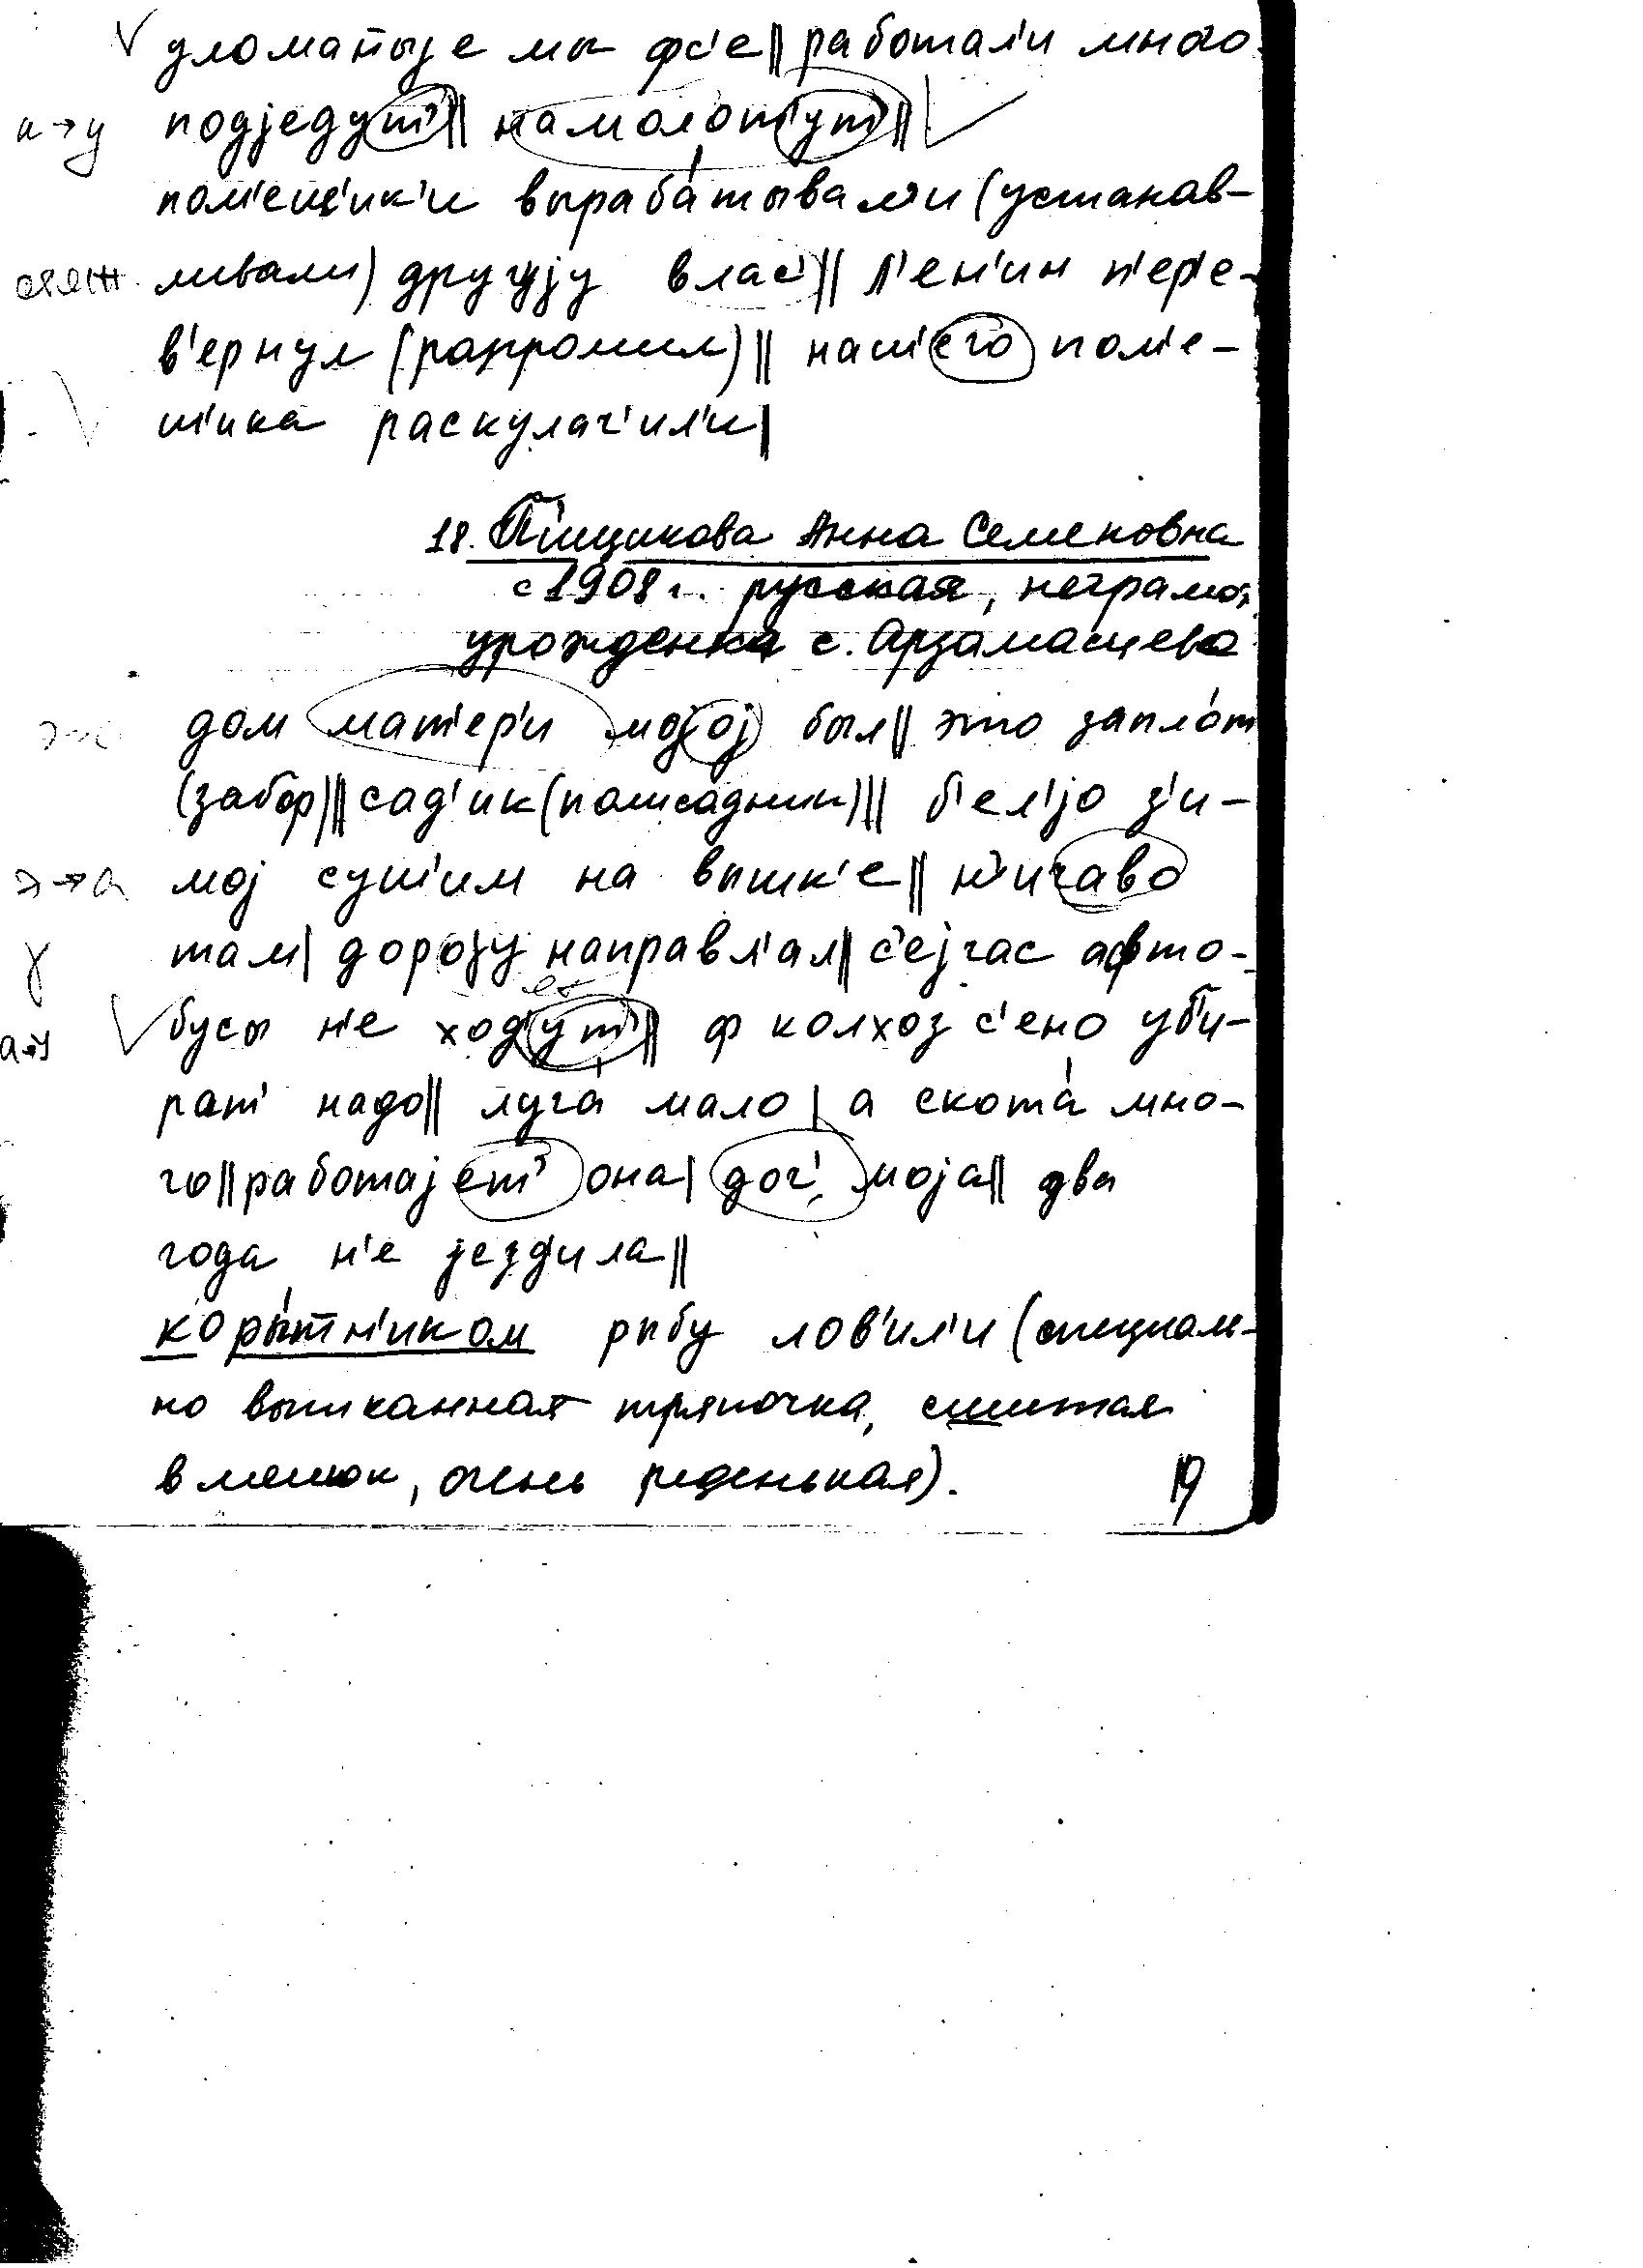 уломатыjе мы фс'е || работал'и много
а→у подjедут' || намолотут' ||
пом'ещ'ик'и выраба́тывал'и (устанав-
ливали) другуjу влас' || л'ен'ин п'ер'е-
в'ернул (разгромил) || наш'его пом'е-
ш'ика раскулач'ил'и |
18. Пищикова Анна Семеновна
с 1908 г. русская, неграмот.
урожденка с. Арзамасцева
дом мат'ер'и моjоj был || это запло́т
(забор) || сад'ик (палисадник) || б'ел'jо з'и-
э→а моj суш'им на вышк'е || н'ичаво
γ там | дороγу направл'ал || с'еjчас афто-
а→у бусы н'е ходут' || ф колхоз с'ено уб'и-
рат' надо || луга́ мало | а скота́ мно-
го || работаjет' она | доч' моjа || два
года н'е jезд'ила ||
коры́тн'иком рыбу лов'ил'и (специаль-
но вытканная тряпочка, сшитая
в мешок, очень реденькая).
19